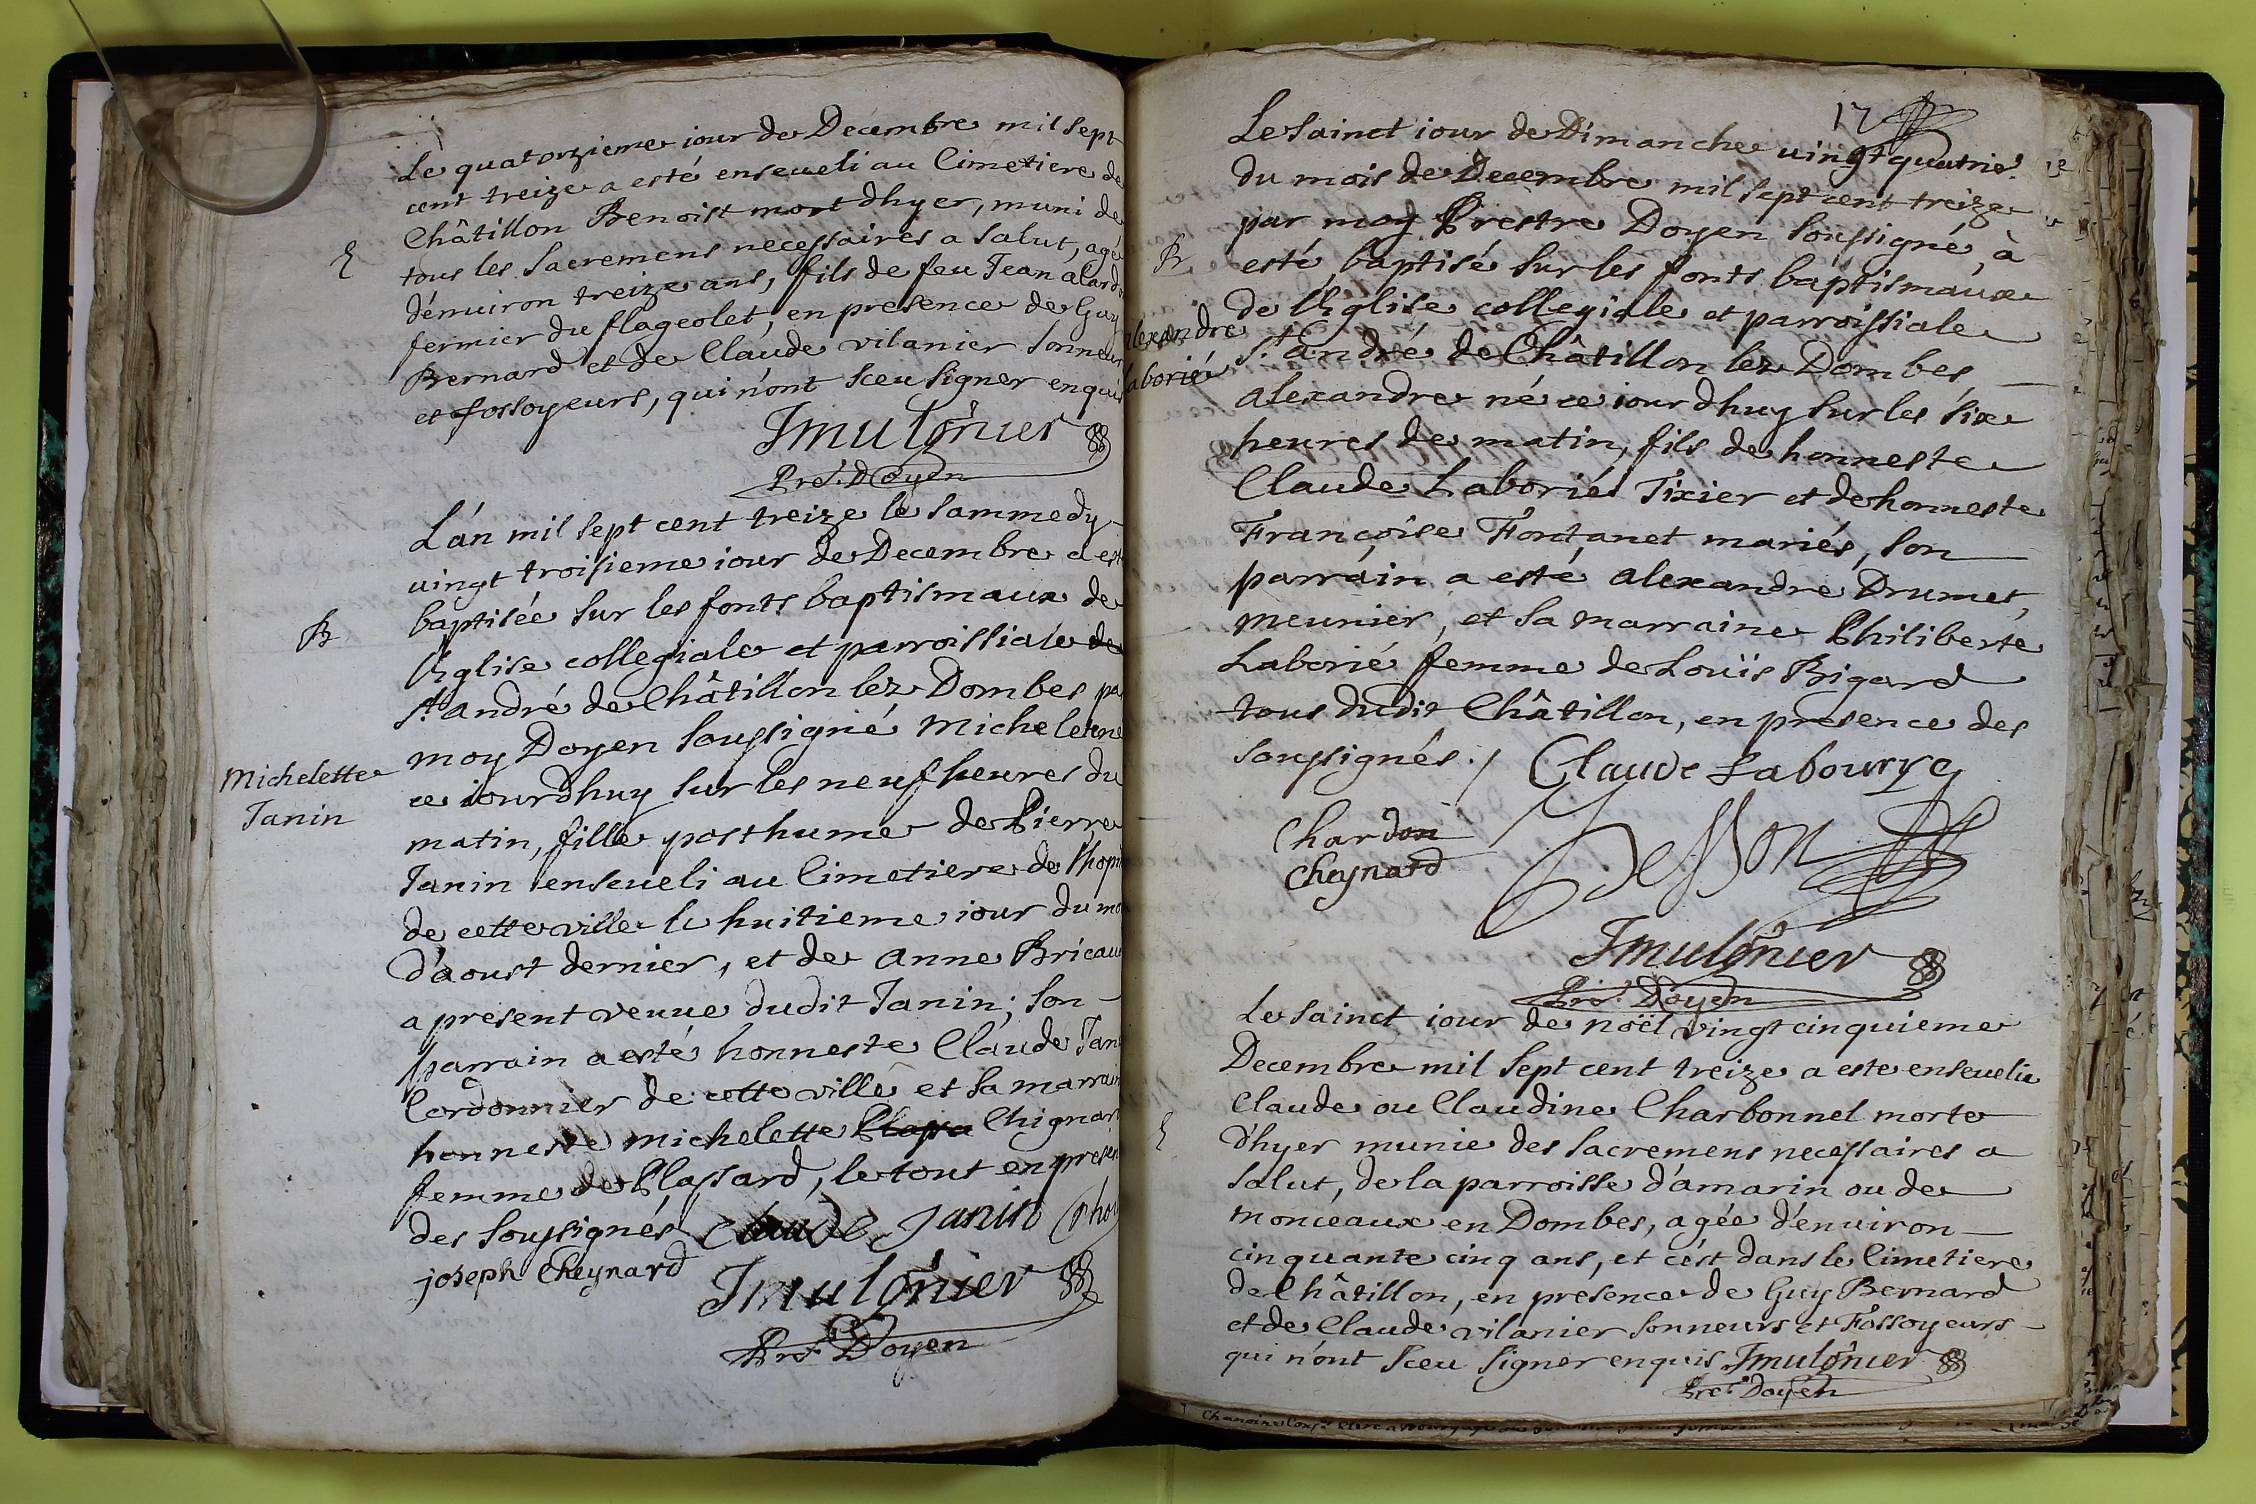 Le quatorzieme iour de Decembre mil sept
cent treize a esté enseueli au Cimetiere de
Châtillon Benoist mort dhyer, muni de
E tous les Sacremens necessaires a Salut, agé
dénuiron treize ans, fils de feu Jean alard
fermier du flageolet, en presence de Guy
Bernard et de Claude vilanier Sonneurs
et fossoyeurs, qui n'ont sceu signer enquis
Jmulônier
Pre. Doyen
L'án mil sept cent treize le Sammedy
vingt troisieme iour de Decembre a est
B baptisée sur les fonts baptismaux de
l'Eglise collegiale et parroissiale de
St. andré de Châtillon lez Dombes pa
moy Doyen soussigné Michelet né
Michelette
Janin
ce iourdhuy sur les neuf heures du
matin, fille posthume de Pierre
Janin enseueli au Cimetiere de l'hopi
de cette ville le huitieme iour du mo
d'aoust dernier, et de anne Bricau
a present veuue dudit Janin; son
parrain a esté honneste Claude Jan
Cordonnier de cette ville et sa marrain
honneste michelette Chignar
femme de Plassard, le tout en presen
des soussignés Claude Janin
joseph Cheynard
Jmulônier
Pre. Doyen
17
Le Sainct iour de Dimanche uingt quatrie.
du mois de Decembre mil sept cent treize
par moy Prestre Doyen soussigné, à
B esté baptisé sur les fonts baptismaux
de l'Eglise collegiale et parroissiale
alexandre
Laborié
St. andré de Châtillon lez Dombes,
alexandre né ce iour dhuy sur les six
heures de matin, fils de honneste
Claude Laborié Tixier et de honneste
Françoise Fontanet mariés, son
parrain a esté alexandre Drumet,
meunier, et sa marraine Philiberte
Laborié femme de Loüis Rigard
tous dudit Châtillon, en presence des
soussignés ./ Claude Labourye
Chardon
Cheynard
Besson
Jmulônier
Pre. Doyen
Le Sainct iour de noël vingt cinquieme
Decembre mil sept cent treize a este enseuelie
Claude ou Claudine Charbonnel morte
E d'hyer munie des Sacremens necessaires a
Salut, de la parroisse d'amarin ou de
monceaux en Dombes, agée d'enuiron
cinquante cinq ans, et c'est dans le Cimetiere
de Châtillon, en presence de Guy Bernard
et de Claude vilanier sonneurs et Fossoyeurs
qui n'ont sceu signer enquis Jmulônier
Pre. Doyen